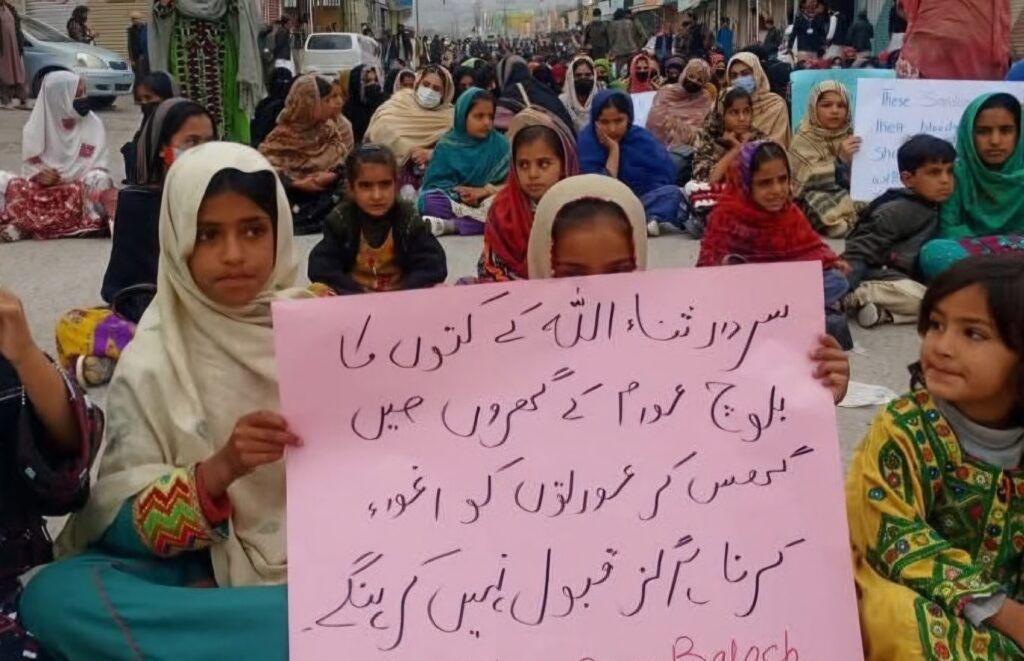 سردار ثناء اللہ کے کتوں کا
بلوچ عورم کے گھروں میں
گھس کر عورتوں کو اغوء
کرنا ہرگز قبول نہیں کرینگے۔
Baloch
These
their bloody